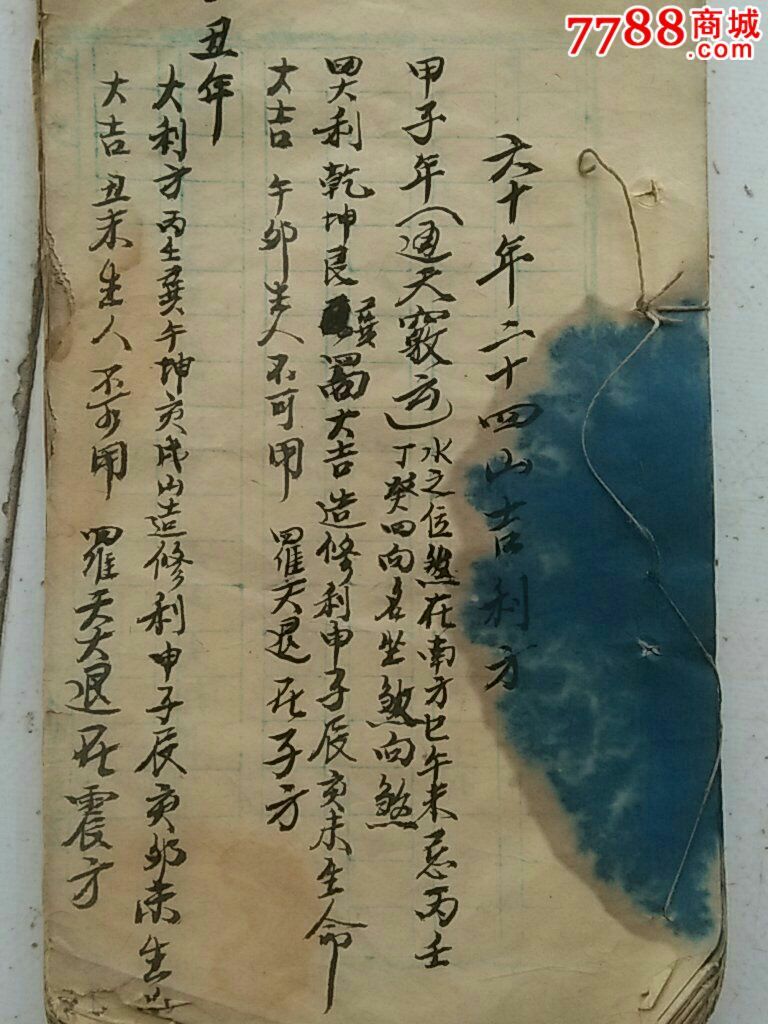 7788商城
.com
六十年二十四山吉利方
甲子年（通天竅云）水之位煞在南方巳午未忌丙壬
丁癸四向名坐煞向煞
四大利乾坤艮巽 大吉造修利申子辰亥未生命
大吉午卯生人不可用羅天退在子方
丑年
大利方丙壬巽午坤亥戌山造修利申子辰亥卯未生
大吉丑未生人不可用羅天大退在震方